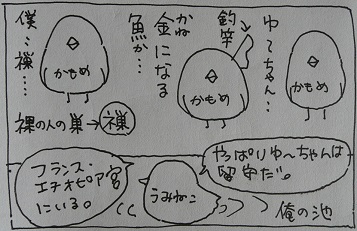 ゆーちゃん…
かもめ
釣竿
かもめ
金になる
かね
魚か…
かもめ
僕…禅……
裸の人の巣→禅
やっぱりゆ〜ちゃんは
留守だ。
うみねこ
フランス・
エチオピア宮
にいる。
俺の池